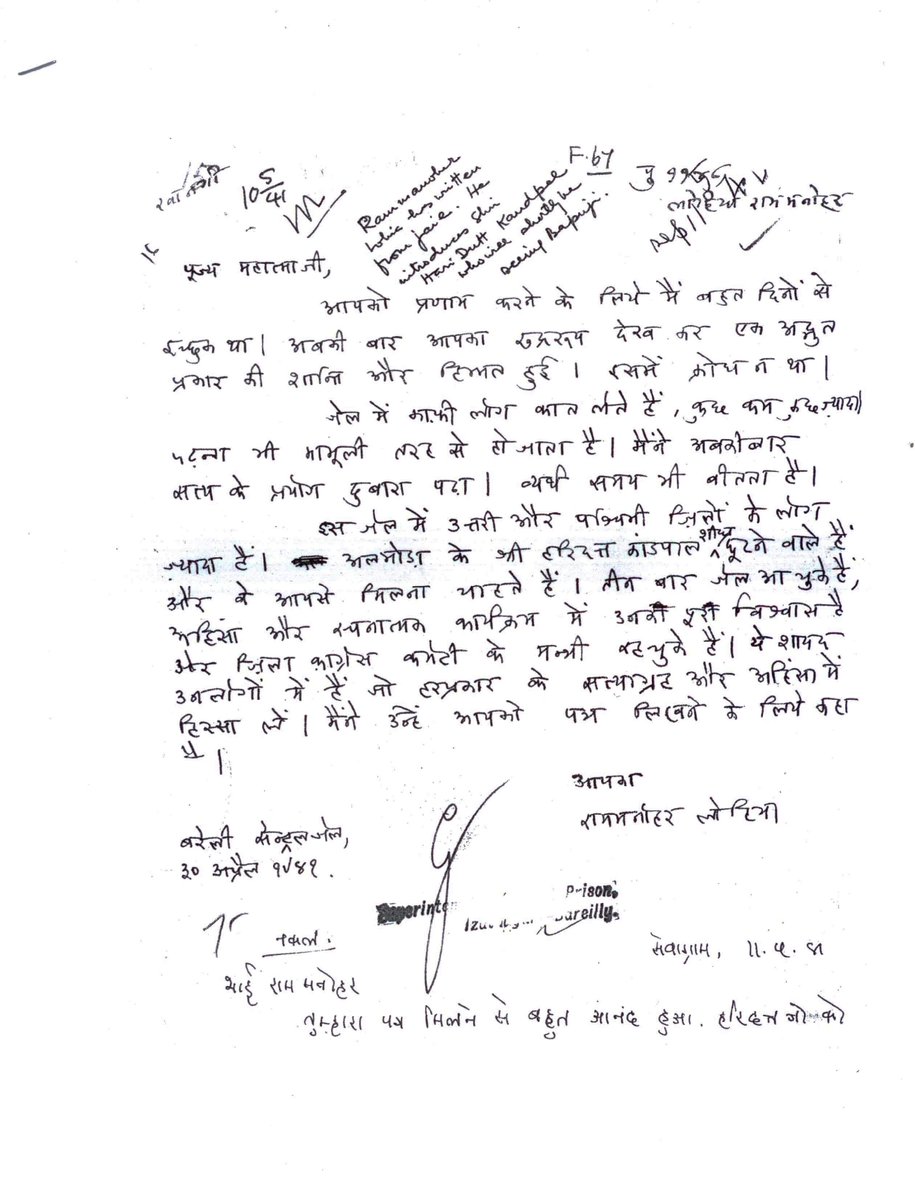 10/5/41
F.67
Rammanohar
Lohia has written
from jail. He
introduces Shri
Hari Dutt Kandpal
who will shortly be
seeing Bapuji.
लोहिया राममनोहर
पूज्य महात्मा जी,
आपको प्रणाम करने के लिये मैं बहुत दिनों से
इच्छुक था। अबकी बार आपका रुद्ररूप देख कर एक अद्भुत
प्रकार की शान्ति और हिम्मत हुई। इसमें क्रोध न था।
जेल में काफ़ी लोग कात लेते हैं, कुछ कम कुछ ज़्यादा।
पढ़ना भी मामूली तरह से हो जाता है। मैंने अबकी बार
सत्य के प्रयोग दुबारा पढ़ा। व्यर्थ समय भी बीतता है।
इस जेल में उत्तरी और पश्चिमी ज़िलों के लोग
ज़्यादा हैं। अलमोड़ा के श्री हरिदत्त कांडपाल शीघ्र छूटने वाले हैं
और वे आपसे मिलना चाहते हैं। तीन बार जेल आ चुके हैं,
अहिंसा और रचनात्मक कार्यक्रम में उनका पूरा विश्वास है
और ज़िला कांग्रेस कमेटी के मन्त्री रह चुके हैं। ये शायद
उन लोगों में हैं जो हर प्रकार के सत्याग्रह और अहिंसा में
हिस्सा लें। मैंने उन्हें आपको पत्र लिखने के लिये कहा
है।
आपका
राममनोहर लोहिया
बरेली सेन्ट्रल जेल,
३० अप्रैल १९४१.
Superinte Prison,
Izatnagar, Bareilly.
नकल.
सेवाग्राम, 11.५.४१
भाई राम मनोहर
तुम्हारा पत्र मिलने से बहुत आनंद हुआ. हरिदत्त जी को